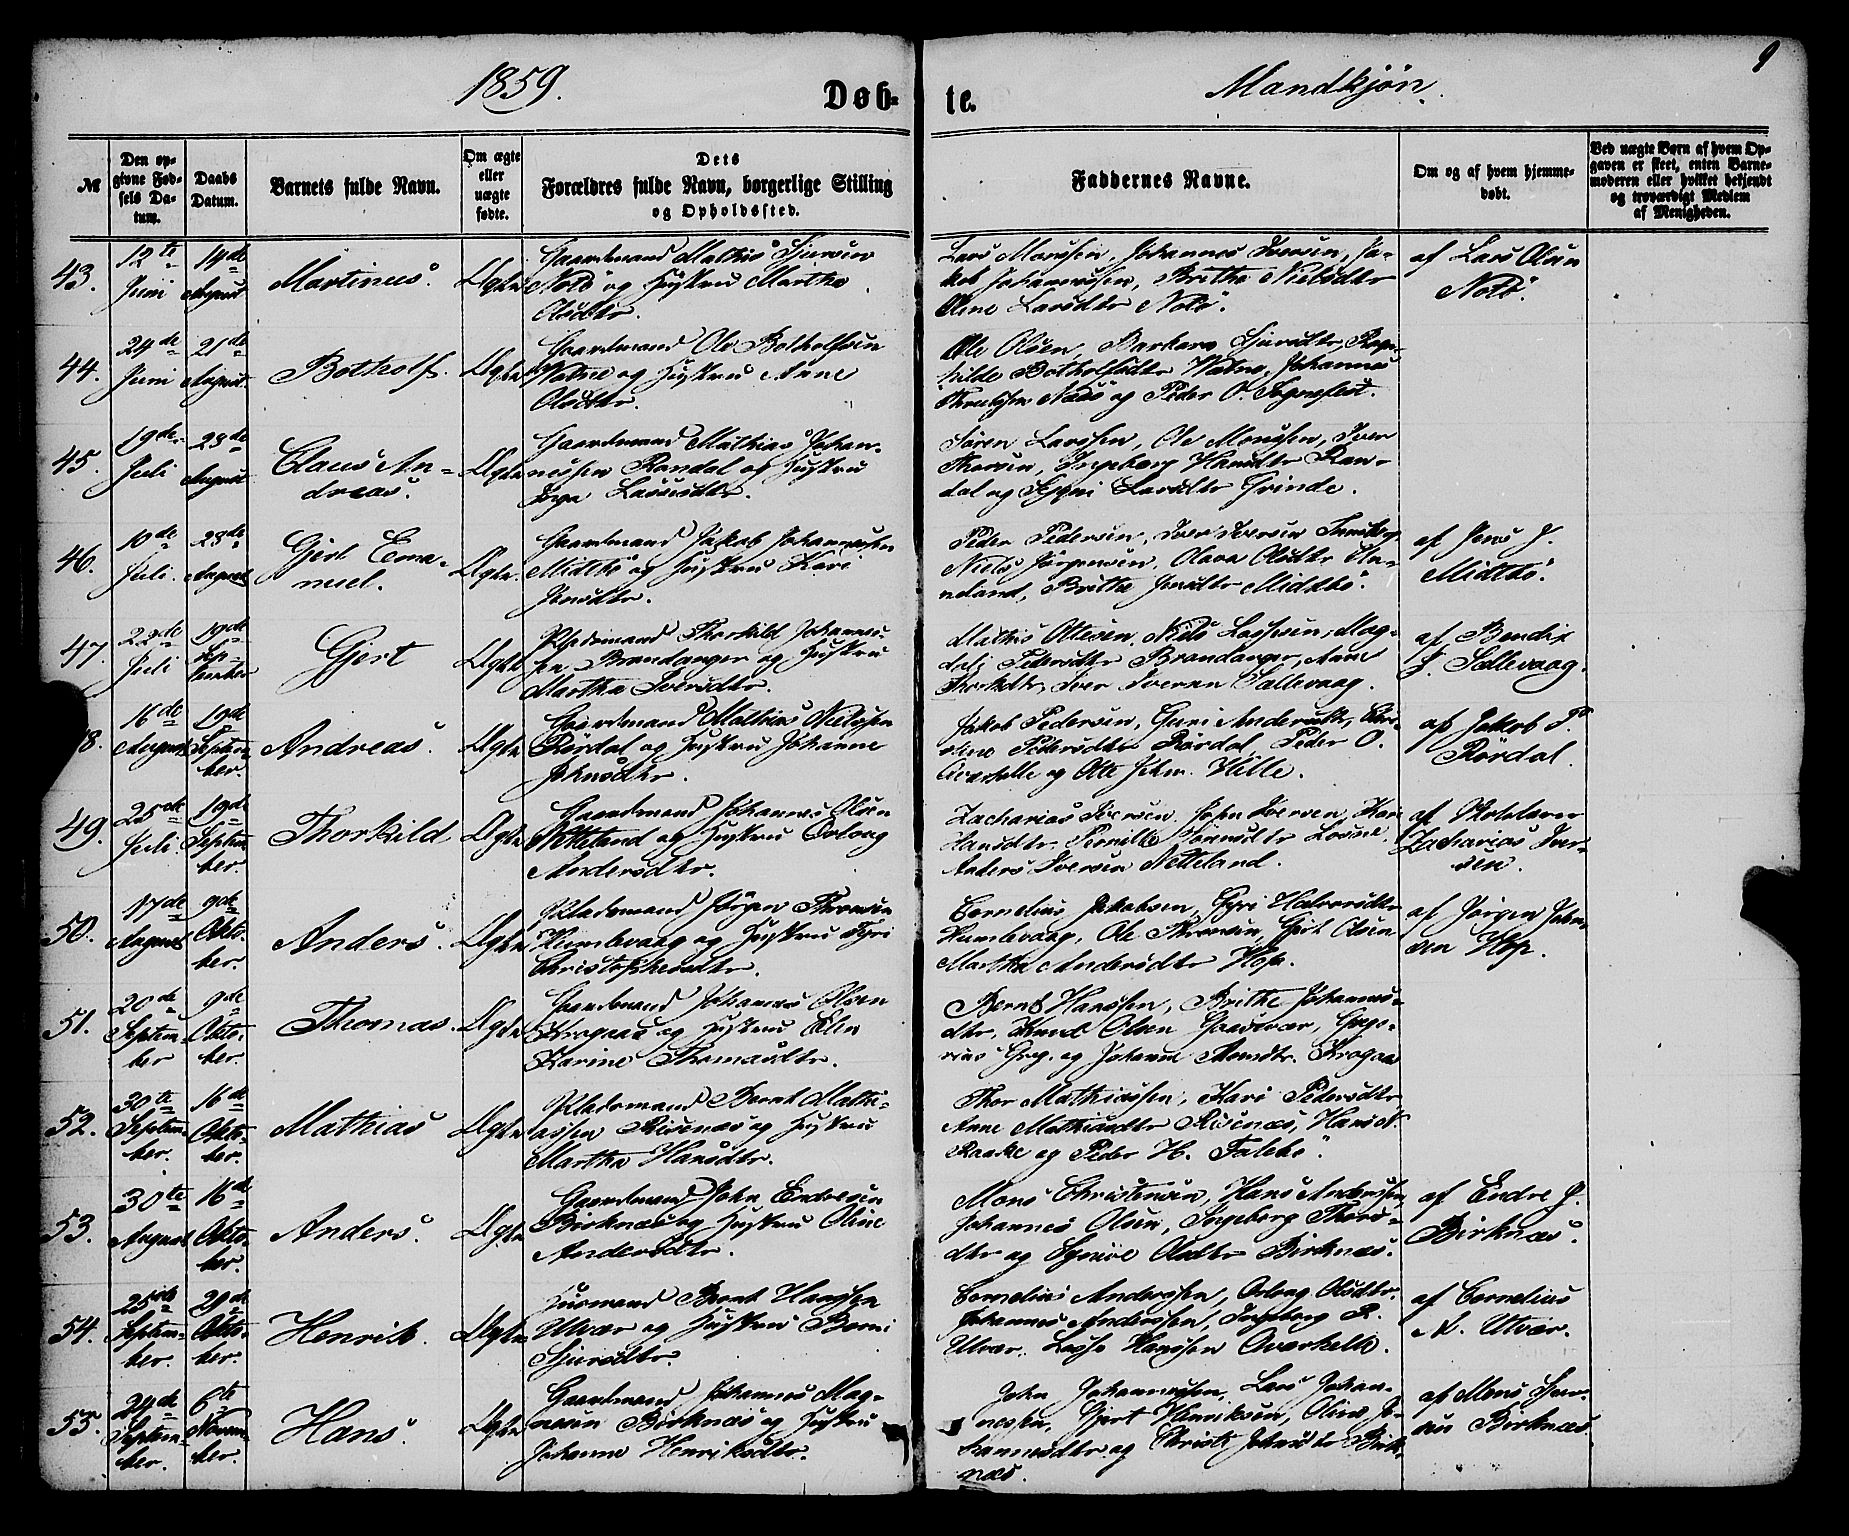 1859.
Døb-
te.
Mandkjøn.
9
№
Den op-
givne Fød-
sels Da-
tum.
Daabs
Datum.
Barnets fulde Navn.
Om ægte
eller
uægte
fødte.
Dets
Forældres fulde Navn, borgerlige Stilling
og Opholdssted.
Faddernes Navne.
Om og af hvem hjemme-
døbt.
Ved uægte Børn af hvem Op-
gaven er skeet, enten Barne-
moderen eller hvilket bekjendt
og troværdigt Medlem
af Menigheden.
43.
12te
Juni
14de
August
Martinus.
Ægte
Gaardmand Mathis Sjursen
Nolö og Hustru Martha
Olsdtr.
Lars Monssen, Johannes Iversen, Ja-
kob Johannessen, Brithe Nielsdtr
Oline Larsdtr Nolö.
af Lars Olsen
Nolö.
44.
24de
Juni
21de
August
Botholf.
Ægte
Gaardmand Ole Botholfsen
og Hustru Anne
Olsdtr.
Ole Olsen, Barbara Sjursdtr, Ragn-
hilde Botholfsdtr Johannes
Næss og Peder O. Sognefest.
45.
19de
Juli
28de
August
Claus An-
dreas.
Ægte
Gaardmand Mathias Johan-
nessen Randal og Hustru
Lassesdtr.
Søren Larssen, Ole Monssen, Iver
Thorsen, Ingeborg Hansdtr Ran-
dal og Larsdtr Grinde.
46.
10de
Juli.
28de
August
Gjert Ema-
nuel.
Ægte
Gaardmand Jakob Johannessen
Midtbö og Hustru Kari
Jensdtr.
Peder Pedersen, Iver Iversen
Niels Jörgensen, Olava Olsdtr
Brithe Jensdtr Midtbö.
af Jens J.
Midtbö.
47.
22de
Juli
19de
Sep-
tember
Gjert
Ægte
Pladsmand Thorkild Johannes-
sen Brandanger og Hustru
Martha Iversdtr.
Mathis Ottesen, Niels Lassesen, Mag-
dali Pedersdtr Brandanger, Anne
Iver Iversen Sællevaag.
af Bendix
J. Sællevaag.
8.
16de
August
19de
Septem-
ber.
Andreas.
Ægte
Gaardmand Mathias Nielssen
Rördal og Hustru Johanne
Johnsdtr.
Jakob Pedersen, Guri Andersdtr,
Pedersdtr Rördal, Peder O.
Qværhelle og Otte Johns. Hille.
af Jakob P.
Rördal.
49.
25de
Juli.
19de
Septem-
ber.
Thorkild
Ægte
Gaardmand Johannes Olsen
Netteland og Hustru Orloug
Andersdtr.
Zacharias Iversen, John Iversen, Kari
Hansdtr, Pernille
Anders Iversen Netteland.
af Skolelærer
Zacharias Iver-
sen.
50.
17de
August
9de
Okto-
ber.
Anders.
Ægte
Pladsmand Jörgen Thomsen
Humlevaag og Hustru Gyri
Christophersdtr.
Cornelius Jakobsen, Gyri Halvorsdtr
Humlevaag, Ole Gjert Olsen
Martha Andersdtr Hop.
af Jörgen John-
sen Hop.
51.
20de
Septem-
ber
9de
Okto-
ber.
Thomas.
Ægte
Gaardmand Johannes Olsen
Krogaas og Hustru Elen
Karine Thomasdtr.
Bernt Hanssen, Brithe Johannes-
dtr, Knud Olsen Gaasvær, Greg-
rius Greg. og Johanne Krogaas
52.
30te
Septem-
ber.
16de
Okto-
ber.
Mathias
Ægte
Pladsmand Bernt Mathi-
assen Risenæs og Hustru
Martha Hansdtr.
Thor Mathiassen, Kari Pedersdtr
Anne Mathiasdtr Risenæs, Hans N.
Raake og Peder H. Falebö.
53.
30te
August
16de
Okto-
ber.
Anders.
Ægte
Gaardmand John Endresen
Birknæs og Hustru Oline
Andersdtr.
Mons Christensen, Hans Anderssen,
Johannes Olsen, Ingeborg Thors-
dtr og Synöve Olsdtr Birknæs.
af Endre J.
Birknæs.
54.
25de
Septem-
ber.
29de
Okto-
ber.
Henrik.
Ægte
Husmand Bernt Hanssen
Utvær og Hustru Borni
Sjursdtr.
Cornelius Anderssen, Orloug Olsdtr.
Johannes Anderssen, Ingeborg R.
Utvær. Lasse Hanssen Qværhelle.
af Cornelius
A. Utvær.
55.
24de
Septem-
ber.
6te
Novem-
ber.
Hans.
Ægte
Gaardmand Johannes Mag-
nesen Birknæs og Hustru
Johanne Henriksdtr.
John Johannessen, Lars Johan-
nessen, Gjert Henriksen, Oline Jo-
hannesdtr og Christi Johnsdtr Birk-
næs.
af Mons
Birknæs.